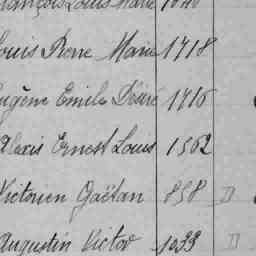 François Louis Marie 1840
Louis Pierre Marie 1718
Eugène Emile Désiré 1716
Alexis Ernest Louis 1562
Victorien Gaëtan 858 D
Augustin Victor 1033 D